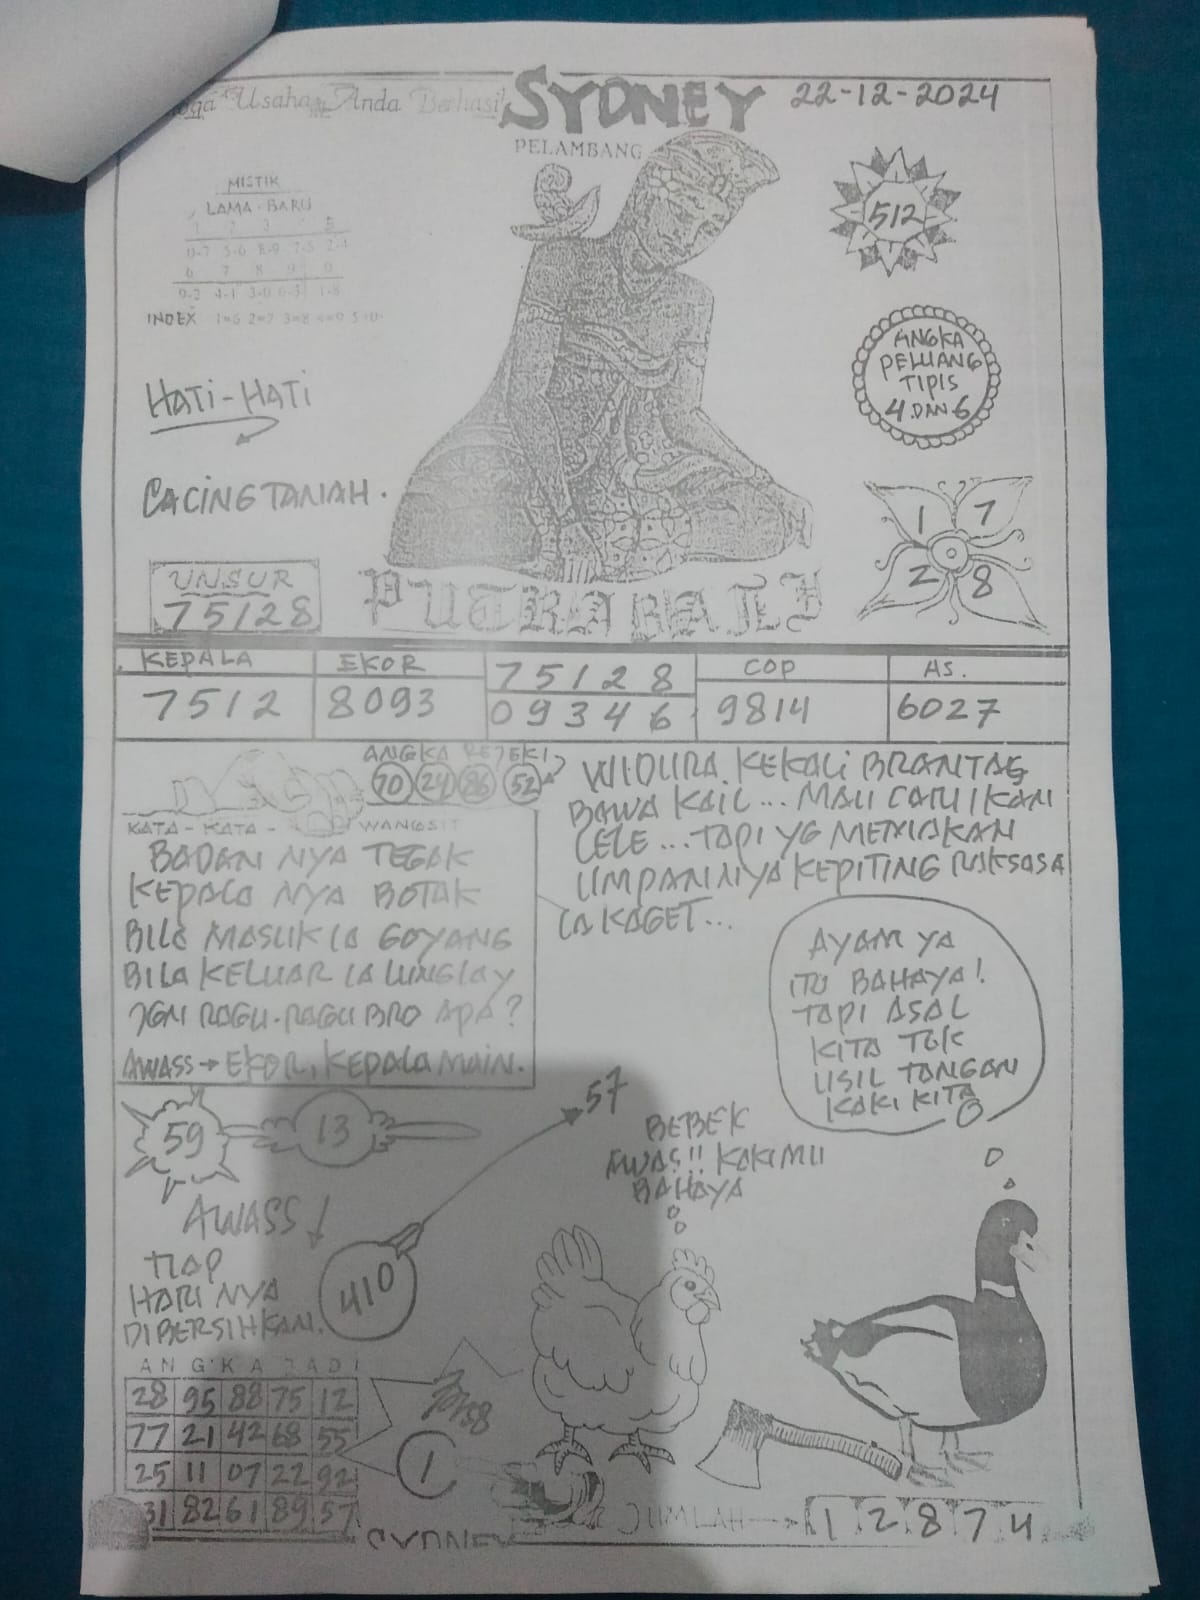 Usaha Anda Berhasil
SYDNEY
22-12-2024
PELAMBANG
MISTIK
LAMA - BARU
512
INDEX 1=6 2=7 3=8 4=9 5=0
ANGKA
PELUANG
TIPIS
4 DAN 6
HATI-HATI
CACING TANAH.
1 7
2 8
UNSUR
75128
PUTRA BALI
KEPALA EKOR 75128 COP AS.
7512 8093 09346 9814 6027
ANGKA REJEKI
70 24 86 52
WIDURA KEKALI BRANTAS
BAWA KAIL... MAU CARI IKAN
LELE... TAPI YG MEMAKAN
UMPANNYA KEPITING RAKSASA
IA KAGET...
KATA-KATA- WANGSIT
BADAN NYA TEGAK
KEPALA NYA BOTAK
BILA MASUK IA GOYANG
BILA KELUAR IA LUNGLAY
JGN RAGU-RAGU BRO APA?
AWASS → EKOR, KEPALA MAIN.
AYAM YA
ITU BAHAYA!
TAPI ASAL
KITA TAK
USIL TANGAN
KAKI KITA
59 13
57
BEBEK
AWAS!! KAKIMU
BAHAYA
AWASS!
TIAP
HARI NYA
DIBERSIHKAN.
410
ANGKA JADI
28 95 88 75 12
77 21 42 68 55
25 11 07 22 92
31 82 61 89 57
1
JUMLAH → 1 2 8 7 4
SYDNEY